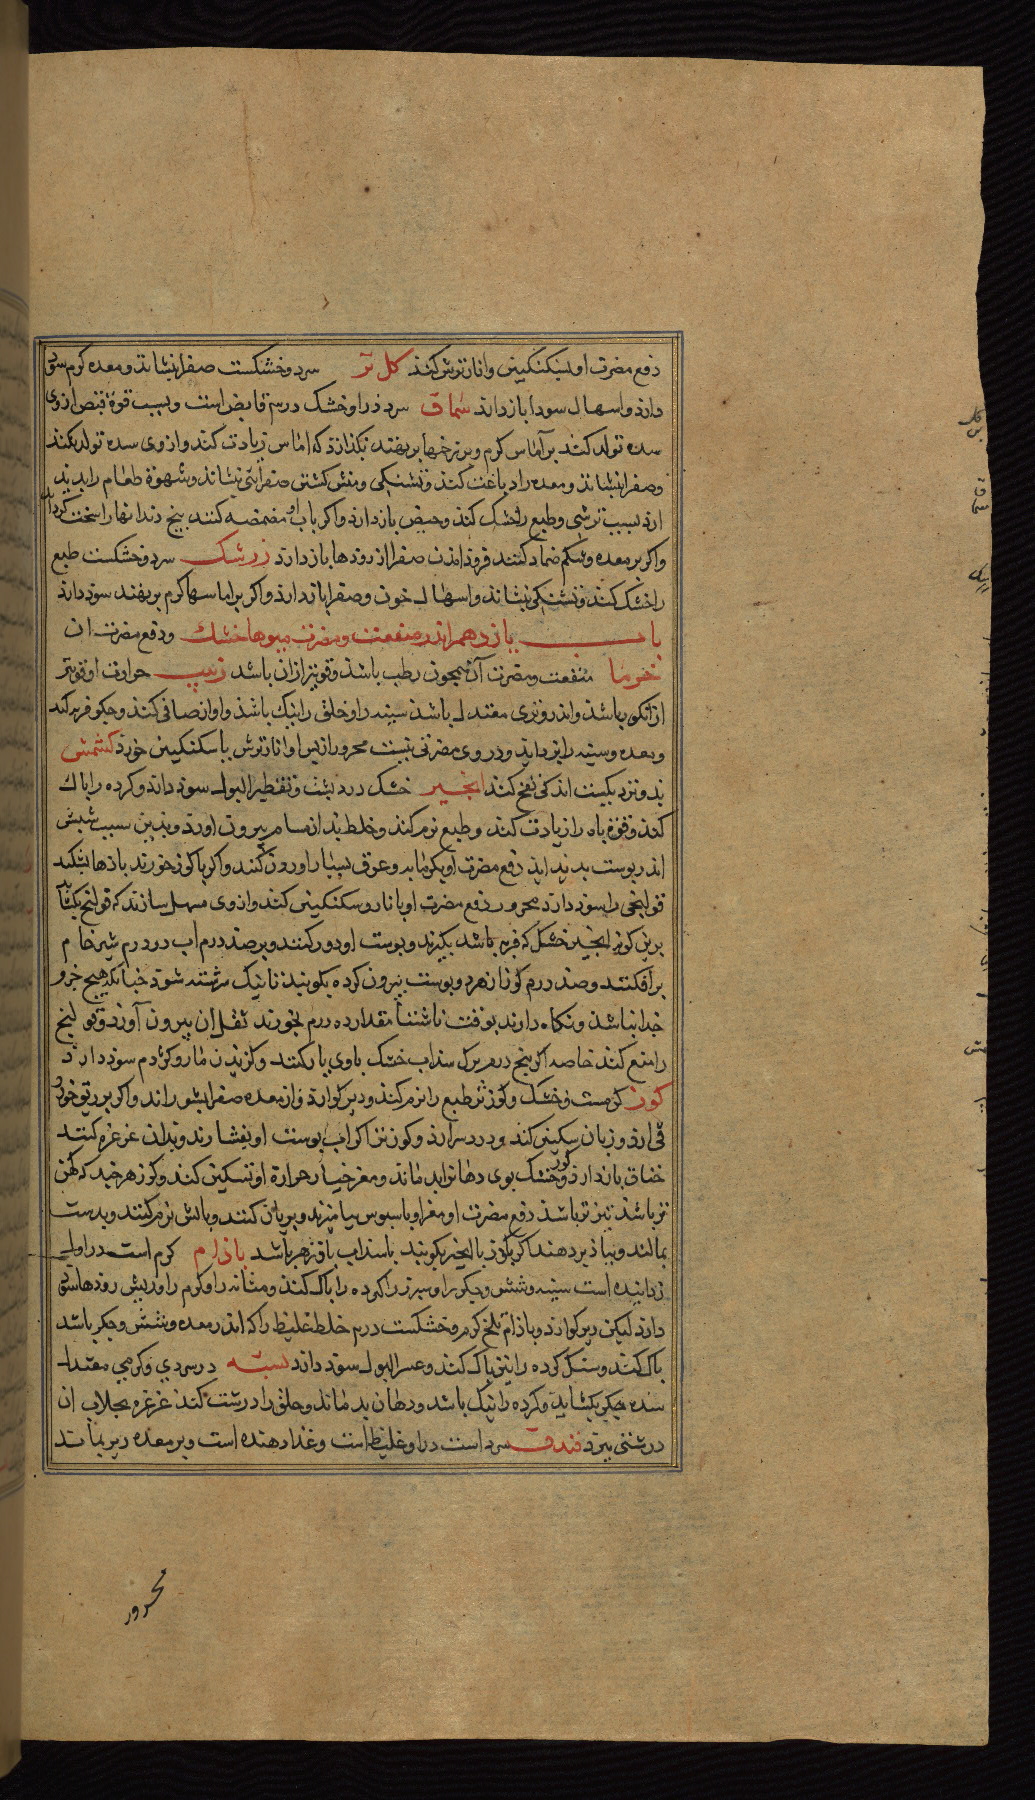 دفع مضرت او بسکنکبین وانار ترش کند کل تر سرد و خشکست صفرا بنشاند و معده کرم سود
دارد واسهال سودا باز دارد سماق سرد در او خشک درسم قابض است و بسبب قوة قبض ازوی
سده تولد کند بر آماس کرم و بر زخمها بر نهند بکذارد که اماس زیادت کند وازوی سده تولد کند
و صفرا بنشاند و معده را دباغت کند و تشنکی و منش کشتن صفرائی بنشاند و شهوة طعام را پدید
ارد بسبب ترشی و طبع را خشک کند و حیض باز دارد واکر باب او مضمضه کنند بیخ دندانها را سخت کرداند
واکر بر معده و شکم ضماد کنند فرود امدن صفرا از رودها باز دارد زرشک سرد و خشکست طبع
را خشک کند و تشنکی بنشاند واسهال خون و صفرا باز دارد واکر بر اماسها کرم بر نهند سود دارد
باب یازدهم اندر منفعت و مضرت میوها خشک و دفع مضرت ان
خرما منفعت و مضرت آن همچون رطب باشد و قویتر ازان باشد زبیب حرارت او قویتر
از انکور باشد واندر و تری معتدل باشد سینه را و حلق را نیک باشد و اواز صافی کند و جکر فربه کند
و معده و سینه را بزداید و در وی مضرتی نیست محرور را پس او انار ترش یا سکنکبین خورد کشمش
بدو نزدیکیت اندکی نفخ کند انجیر خشک درد پشت و تقطیر البول سود دارد و کرده را پاک
کند و قوة باه را زیادت کند و طبع نرم کند و خلط بد از مسام بیرون اورد و بدین سبب شپش
اندر پوست پدید اید دفع مضرت او بکرمابه و عرق بسیار اوردن کنند واکر با کوز خورند بادها بشکند
قولنجی را سود دارد محرور دفع مضرت او بانار و سکنکبین کند وازوی مسهل سازند که قولنج بکشاید
برین کونه انجیر خشک که فربه باشد بکیرند و پوست او دور کنند و بر صد درم اب ده درم شیر خام
بر افکنند و صد درم کوز از هر دو پوست بیرون کرده بکوبند تا نیک سرشته شود چنانک هیچ جزو
جدا نباشد و نکاه دارند بوقت ناشتا مقدار ده درم بخورند ثفل ان بیرون آورد و قولنج
را منع کند خاصه اکر پنج درم برک سداب خشک با وی یار کنند و کزیدن مار و کژدم سود دارد
کوز کرمست و خشک و کوز تر طبع را نرم کند و دیر کوارد و از معده صفرا بشوراند واکر بر ریق خورد
قی ارد و زبان سنکین کند و درد سر ارد و کوز تر اکر اب پوست او بفشارند و بدان غرغره کنند
خناق باز دارد و کوز خشک بوی دهانرا بد ماند و مغز خیار حرارة او تسکین کند و کوز هر چند کهن
تر باشد تیز تر باشد دفع مضرت او مغز او با سبوس بیامیزند و بریان کنند و بالش نرم کنند و بدست
بمالند و بباد بر دهند اکر بکوز با انجیر بکوبند با سداب پاد زهر باشد باذام کرم است در اول
زداینده است سینه و شش و جکر را و سپرز را کرده را پاک کند و مثانه را و کرم را و ریش رودها سود
دارد لیکن دیر کوارد و باذام تلخ کرم و خشکست درم خلط غلیظ را که اندر معده و شش و جکر باشد
پاک کند و سنک کرده را نیز پاک کند و عسر البول سود دارد پسته در سردی و کرمی معتدل
سده جکر بکشاید و کرده را نیک باشد و دهان بد ماند و حلق را درشت کند غرغره بجلاب ان
درشتی ببرد فندق سرد است در او غلیظ است و غذا دهنده است و بر معده دیر بماند
محرور